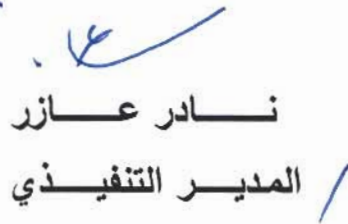 نادر عازر
المدير التنفيذي